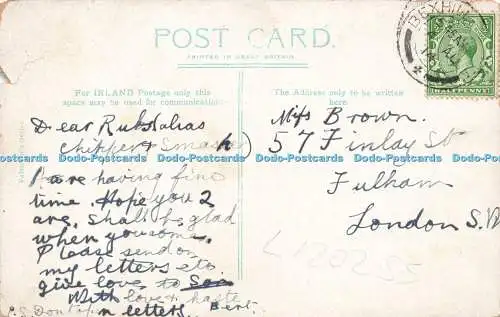 POST CARD.
PRINTED IN GREAT BRITAIN
For INLAND Postage only this
space may be used for communication.
The Address only to be written
here.
BEXHILL
HALFPENNY
Dear Rubs alias
chipper & Smasher)
are having fine
time. Hope you 2
are. Shall be glad
when you come.
Please send on
my letters etc
give love to
With love & haste
Bert.
P.S. Don't open letters.
Miss Brown.
57 Finlay St
Fulham
London S.W
L120255
Dodo-Postcards Dodo-Postcards Dodo-Postcards Dodo-Postcards Dodo-Postcards